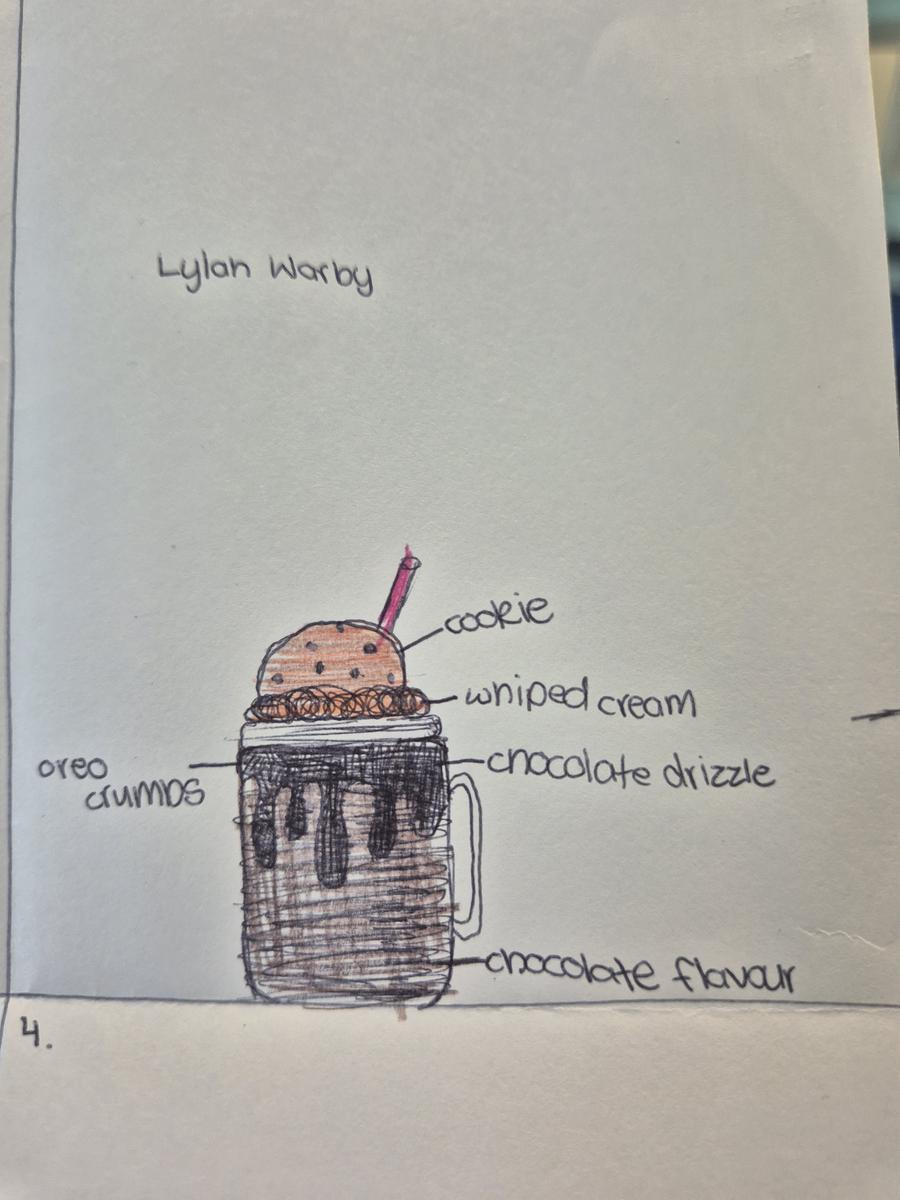 Lylah Warby
cookie
whiped cream
oreo
crumbs
chocolate drizzle
chocolate flavour
4.